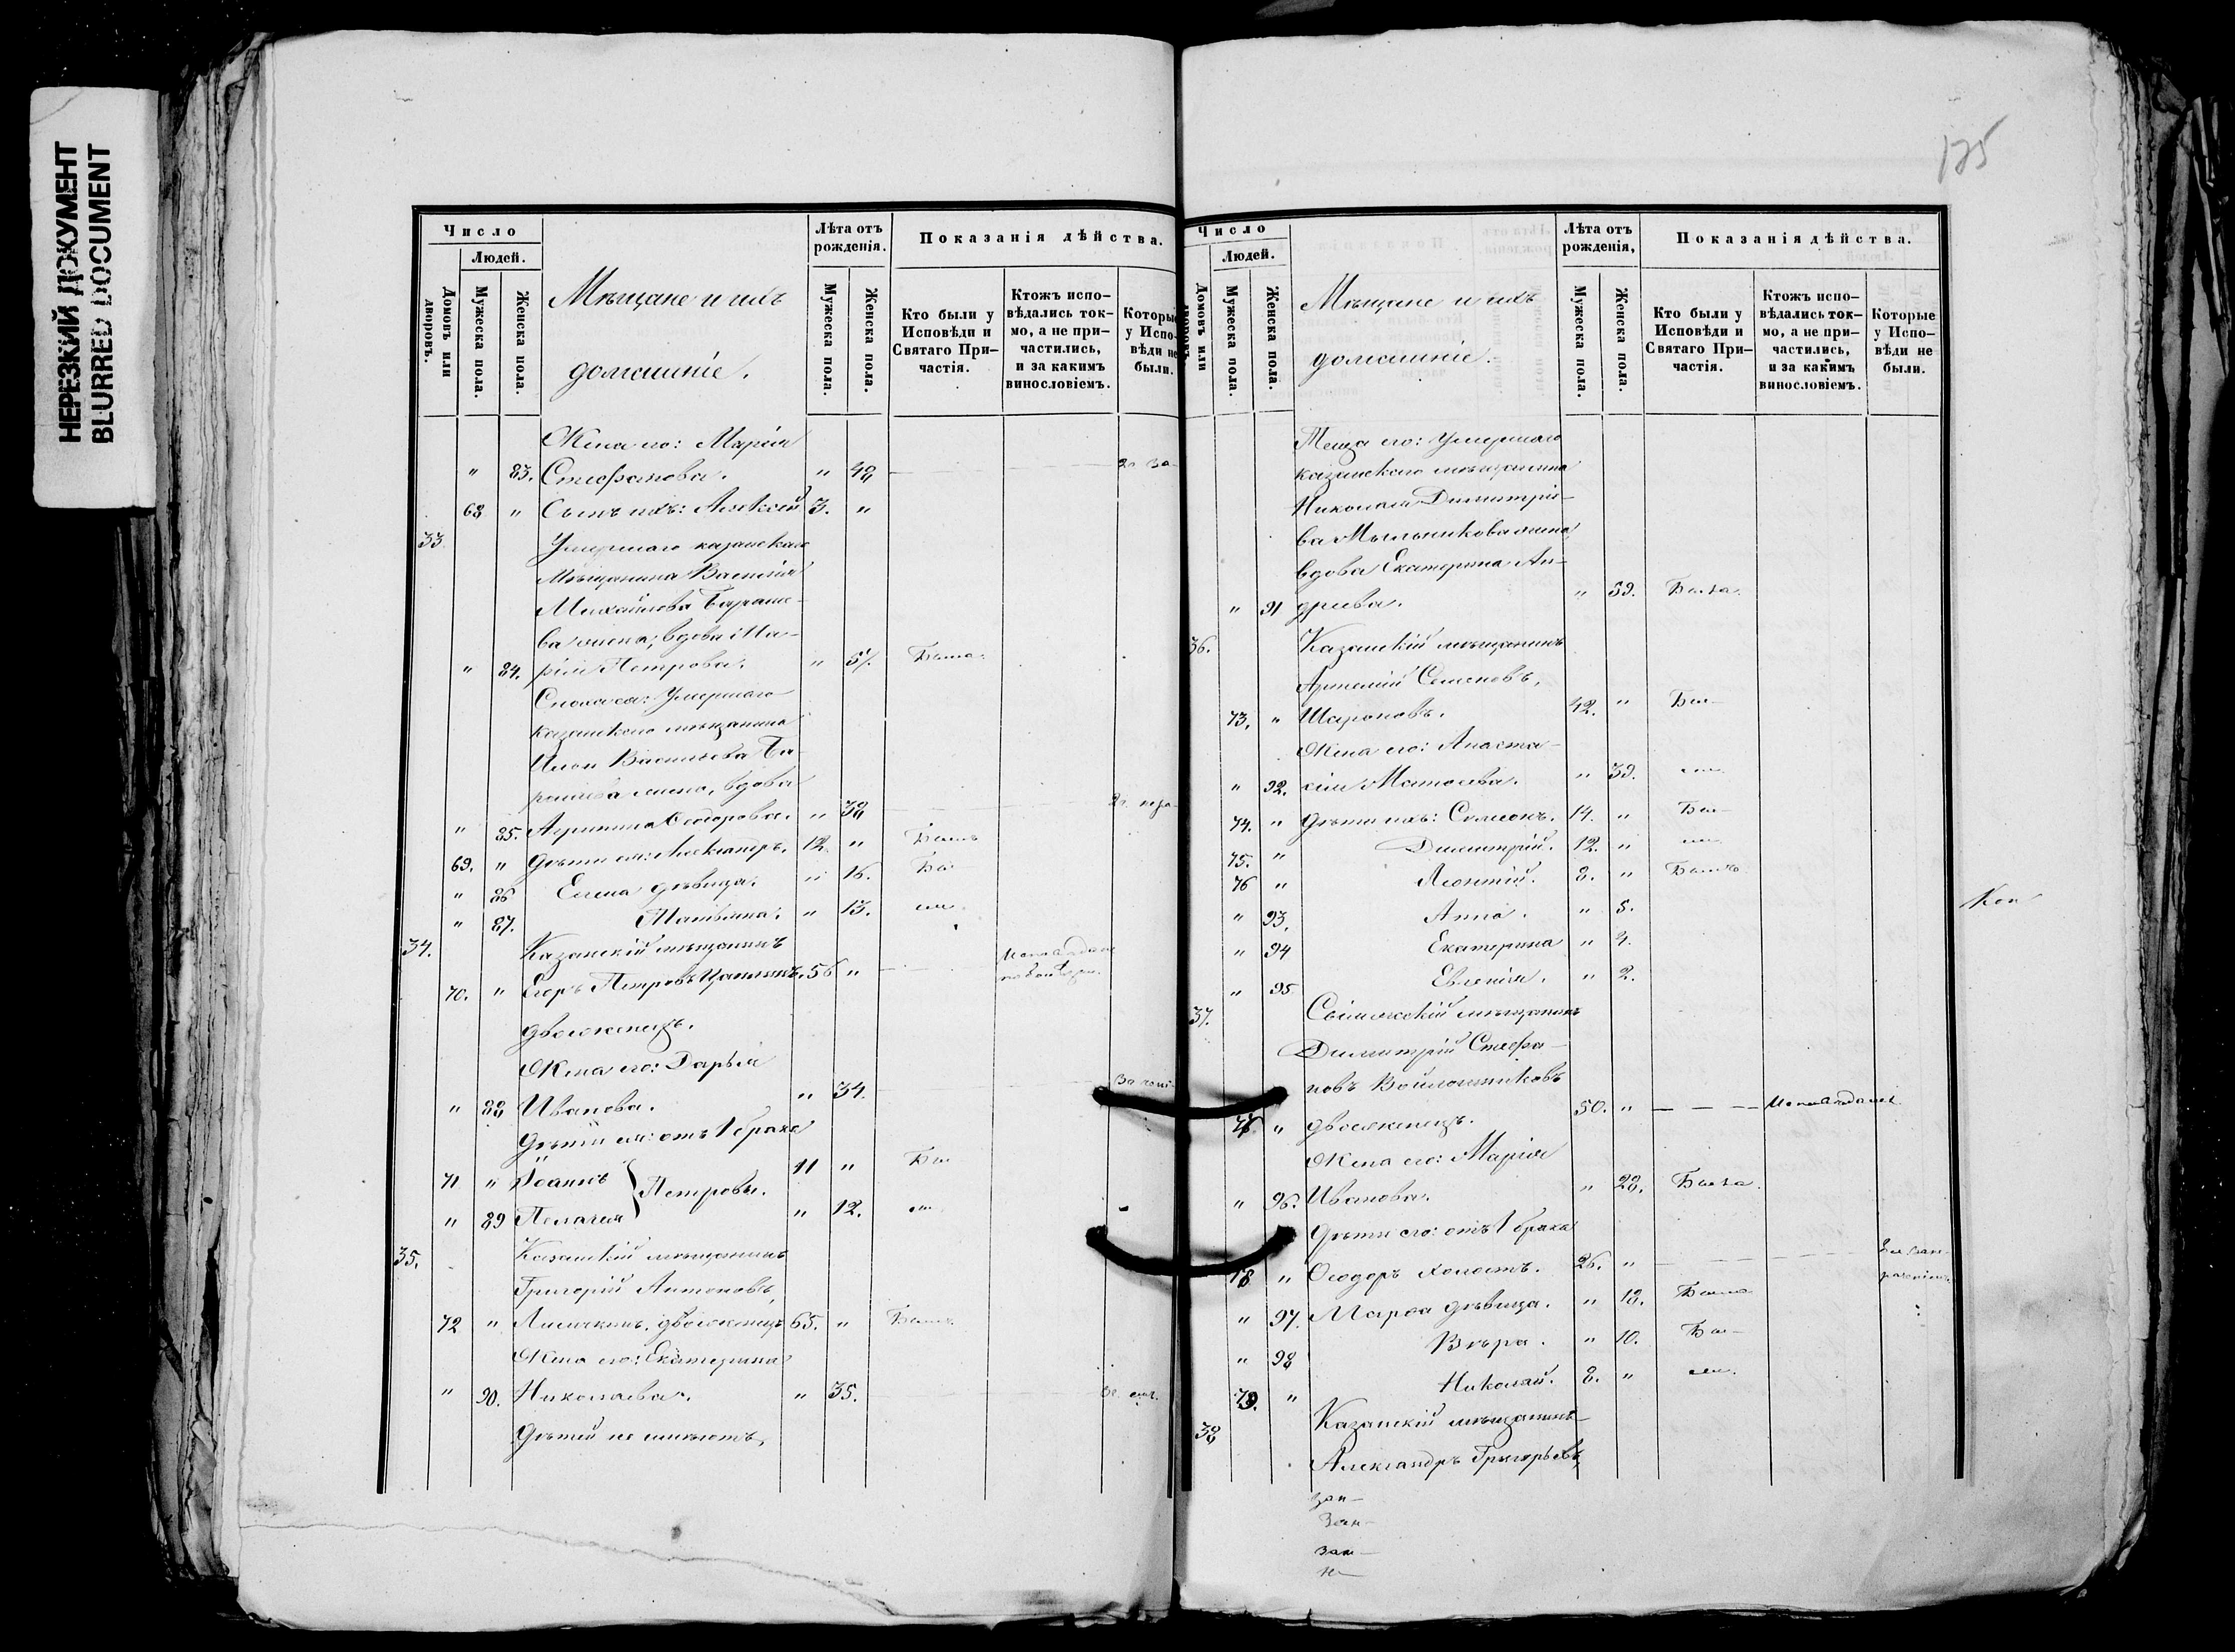 НЕРЕЗКИЙ ДОКУМЕНТ
BLURRED DOCUMENT
Число
Людей.
Домовъ или дворовъ.
Мужеска пола.
Женска пола.
Мѣщане и ихъ
домашніе.
Лѣта отъ рожденія.
Мужеска пола.
Женска пола.
Показанія дѣйства.
Кто были у Исповѣди и Святаго При-частія.
Ктожъ испо-вѣдались ток-мо, а не при-частились, и за какимъ винословіемъ.
Которые у Испо-вѣди не были.
Жена его: Марія
" 83. Стефанова. " 48
68 " Сынъ ихъ: Алексей 3. "
33 Умершаго казанскаго
Мѣщанина Василія
Михайлова
жена, вдова Ма-
" 84. рія Петрова. " Была
Сноха ея: Умершаго
казанского мѣщанина
Васильева Ба-
жена, вдова
" 85. Агрипина Ѳеодорова. " 38
69. " Дѣти ея: Александръ. 12. "
" 86 Елена дѣвица. " 16. Бы
" 87. Татьяна. " 13. ли.
34. Казанскій мѣщанинъ
70. " Егоръ Петровъ 56 "
двоеженецъ.
Жена его: Дарья
" 88 Иванова. " 34.
Дѣти ея: отъ 1 брака
71 " Іоаннъ 11 " Бы
Петровы.
" 89 Пелагея " 12. ли
35. Казанскій мѣщанинъ
Григорій Антоновъ,
72 " двоеженецъ 65. " Былъ
Жена его: Екатерина
" 90. Николаева. " 35.
Дѣтей не имѣютъ.
125
Число
Людей.
Домовъ или дворовъ.
Мужеска пола.
Женска пола.
Мѣщане и ихъ
домашніе.
Лѣта отъ рожденія,
Мужеска пола.
Женска пола.
Показанія дѣйства.
Кто были у Исповѣди и Святаго При-частія.
Ктожъ испо-вѣдались ток-мо, а не при-частились, и за какимъ винословіемъ.
Которые у Испо-вѣди не были.
Теща его: Умершаго
казанскаго мѣщанина
Николая Димитріе-
ва Мыльникова жена
вдова Екатерина Ан-
" 91 дреева. " 59. Была
36. Казанскій мѣщанинъ
Артемій Семеновъ,
73. " Шароновъ. 42. " Бы-
Жена его: Анаста-
" 92. сія Матвеева. " 39. ли.
74. " Дѣти ихъ: Симеонъ. 14. " Бы-
75. " Димитрій. 12. " ли
76 " Леонтій. 8. " Былъ
" 93. Анна. " 5.
" 94 Екатерина " 4.
" 95 Евгенія. " 2.
Кон
37. мѣщанинъ
Димитрій Стефа-
новъ Войлошниковъ
77. " двоеженецъ. 50. " Исповѣдался
Жена его: Марія
" 96. Иванова. " 28. Была.
Дѣти его: отъ 1 брака
78 " Ѳеодоръ холостъ. 26. "
" 97. Марѳа дѣвица. " 18. Была
" 98 Вѣра. " 10. Бы-
79. " Николай. 8. " ли.
38 Казанскій мѣщанинъ
Александръ Григорьевъ,
Зан-
Зан-
Зан-